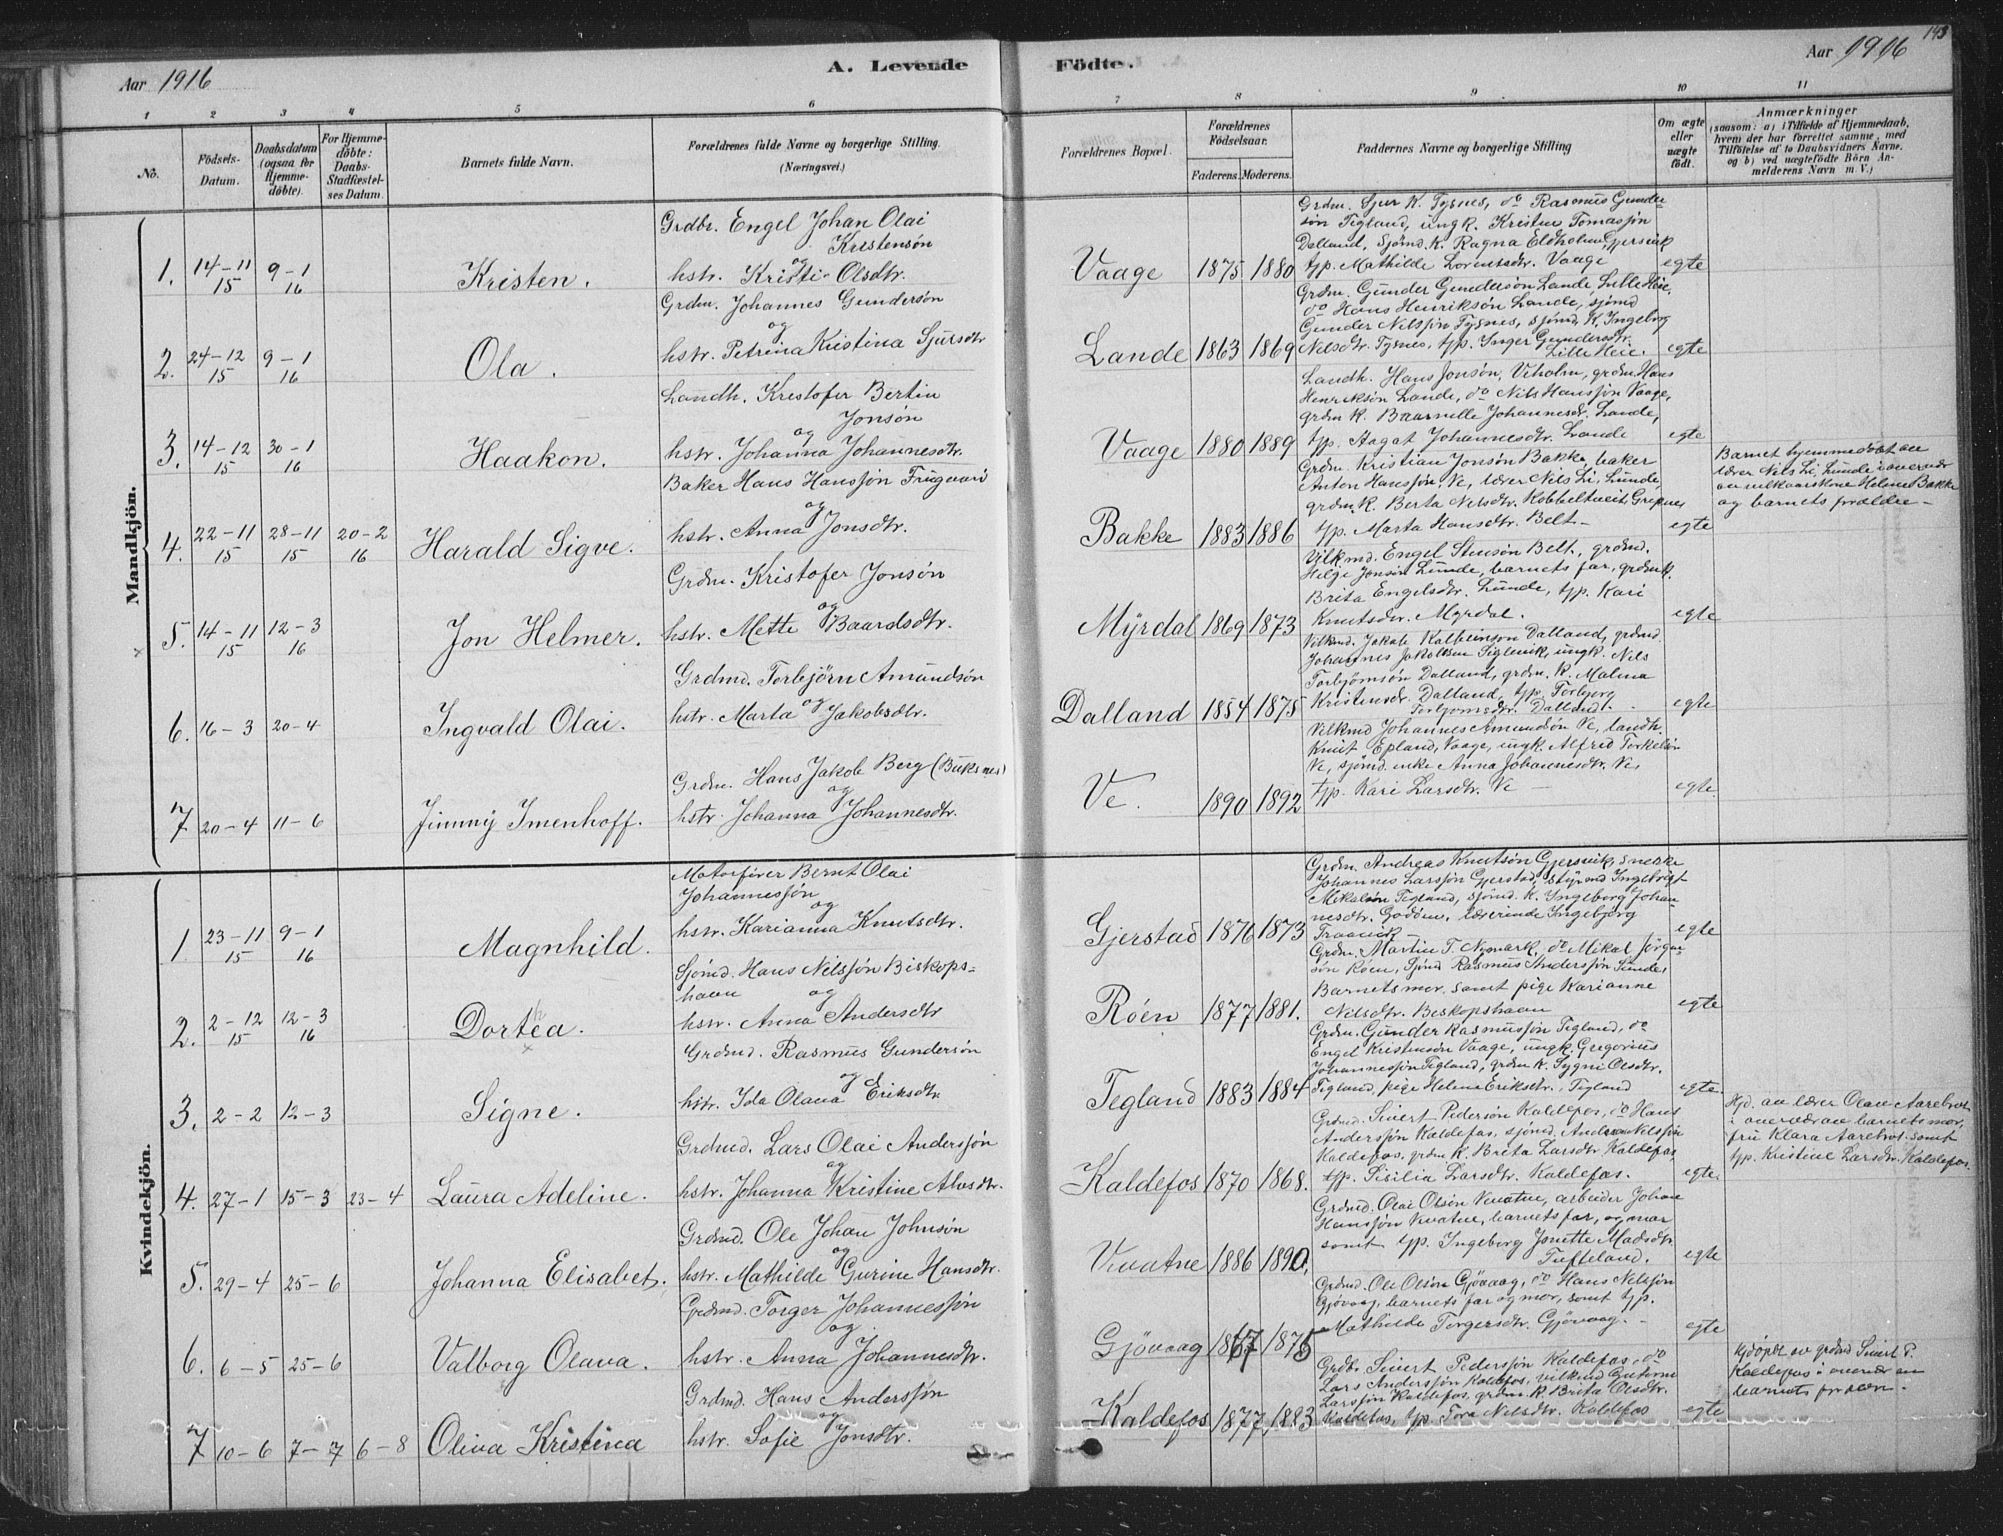 Aar 1916
A. Levende Födte.
Aar 1916
143
1 2 3 4 5 6 7 8 9 10 11
No.
Födsels-Datum.
Daabsdatum (ogsaa for Hjemme-döbte).
For Hjemme-döbte: Daabs-Stadfæstel-ses Datum.
Barnets fulde Navn.
Forældrenes fulde Navne og borgerlige Stilling. (Næringsvei.)
Forældrenes Bopæl.
Forældrenes Födselsaar.
Faderens. Moderens.
Faddernes Navne og borgerlige Stilling
Om ægte eller uægte födt.
Anmærkninger
(saasom: a) i Tilfælde af Hjemmedaab,
hvem der har forrettet samme, med
Tilföielse af to Daabsvidners Navne.
og b) ved uægtefödte Börn An-
melderens Navn m. V.)
Mandkjön.
1. 14-11 15 9-1 16 Kristen.
Grdbr. Engel Johan Olai
Kristensön
og
hstr. Kristi Olsdtr.
Vaage 1875 1880
Grdm. Sjur K. Tysnes, do Rasmus Gunder-
sön Tegland, ungk. Kristen Tomasjön
Dalland, sjömd. K. Ragna Eldholm, Gjersvik
tjp. Mathilde Lorentsdtr. Vaage egte
2. 24-12 15 9-1 16 Ola.
Grdm. Johannes Gundersön
og
hstr. Petrina Kristina Sjursdtr
Lande 1863 1869
Grdm. Gunder Gundersön Lande Lille Heie,
do Hans Henriksön Lande, sjömd
Gunder Nilsjön Tysnes, sjömd. K. Ingeborg
Nilsdtr. Tysnes, tjp. Inger Gundersdtr.
Lille Heie. egte
3. 14-12 15 30-1 16 Haakon.
Landh. Kristofer Bertin
Jonsön
og
hstr. Johanna Johannesdtr.
Vaage 1880 1889
Landh. Hans Jonsön, Veholm, grdm Hans
Henriksön Lande, do Nils Hansjön Vaage,
grdm K. Baarnille Johannesd. Lande,
tjp. Aagat Johannesdtr. Lande egte
4. 22-11 15 28-11 15 20-2 16 Harald Sigve.
Baker Hans Hansjön
og
hstr. Anna Jonsdtr.
Bakke 1883 1886
Grdm. Kristian Jonsön Bakke, baker
Anton Hansjön Ve, lærer Nils Li, Lunde,
grdm K. Berta Nelsdtr.
tjp. Marta Hansdtr. Belt egte
Barnet hjemmedöbt av
lærer Nils Li, Lunde i overvær
av vilkaarskone Helene Bakke
og barnets forældre
5. 14-11 15 12-3 16 Jon Helmer.
Grdm. Kristofer Jonsön
og
hstr. Mette Baardsdtr.
Myrdal 1869 1873
Vilkmd. Engel Stensön Belt., grdmd.
Helge Jonsön Lunde, barnets far, grdm K.
Brita Engelsdtr. Lunde, tjp. Kari
Knutsdtr. Myrdal. egte
6. 16-3 20-4 Ingvald Olai.
Grdmd. Torbjörn Amundsön
og
hstr. Marta Jakobsdtr.
Dalland 1854 1875
Vilkmd. Jakob Dalland, grdmd.
Johannes Jakobsen Siglevik, ungk. Nils
Torbjörnsön Dalland, grdm. K. Malena
Kristensdr. Dalland, tjp. Torbjorg
Torbjornsdtr. Dalland. egte
7 20-4 11-6 Jimmy Imenhoff.
Grdm. Hans Jakob Berg (Buksnes)
og
hstr. Johanna Johannesdtr.
Ve. 1890 1892
Vilkmd Johannes Amundsön Ve, landh.
Knut Epland, Vaage, ungk. Alfred Torkelsön
Ve, sjömd. enke Anna Johannesdtr. Ve,
tjp. Kari Larsdtr. Ve egte.
Kvindekjön.
1 23-11 15 9-1 16 Magnhild.
Motorförer Bernt Olai
Johannesjön
og
hstr. Karianna Knutsdtr.
Gjerstad 1870 1873
Grdm. Andreas Knutsön Gjersvik, snekke
Johannes Larsjön Gjerstad, styrmd Ingebrigt
Mikalsön Tegland, sjömd. K. Ingeborg Johan-
nesdtr. Godöen, lærerinde Ingebjörg
egte
2. 2-12 15 12-3 16 Dorthea.
Sjömd. Hans Nilsjön Biskops-
havn og
hstr. Anna Andersdtr
Röen 1877 1881.
Grdm. Martin T. Nymark, do Mikal Jörgen-
sön Röen, Sjömd Rasmus Andersjön Lunde,
Barnets mor, samt pige Karianne
Nilsdtr. Beskopshavn egte
3. 2-2 12-3 Signe.
Grdmd. Rasmus Gundersön
og
hstr. Ida Olava Eriksdtr
Tegland 1883 1884
Grdm. Gunder Rasmusjön Tegland, do
Engel Kristensön Vaage, ungk. Gregorius
Johannesjön Tegland, grdm K. Sygni Olsdtr.
Tegland, pige Helene Eriksdtr. Tegland egte
4. 27-1 15-3 23-4 Laura Adeline.
Grdmd. Lars Olai Andersjön
og
hstr. Johanna Kristine Alvsdtr.
Kaldefos 1870 1868.
Grdmd. Sivert Pedersön Kaldefos, do Hans
Andersjön Kaldefos, sjömd. Anders Nilsjön
Kaldefos, grdm K. Brita Larsdtr Kaldefos,
tjp. Sesilia Larsdtr. Kaldefos. egte.
Hjd. av lærer Olav Aarebrot
i overvær av barnets mor,
fru Klara Aarebrot samt
tjp. Kristine Larsdtr. Kaldefos.
5. 29-4 25-6 Johanna Elisabet.
Grdmd. Ole Johan Johnsön
og
hstr. Mathilde Gurine Hansdtr.
Kvatne 1886 1890.
Grdmd. Olai Olsön Kvatne, arbeider Johan
Hansjön Kvatne, barnets far, og mor
samt tjp. Ingeborg Jonette Madsdtr
Tufteland. egte
6. 6-5 25-6 Valborg Olava.
Grdmd. Torger Johannesjön
og
hstr. Anna Johannesdtr.
Gjövaag 1867 1875
Grdmd. Ole Olsön Gjövaag, do Hans Nelsjön
Gjövaag, barnets far og mor, samt tjp.
Mathilde Torgersdtr. Gjövaag. egte
7 10-6 7-7 6-8 Oliva Kristina
Grdmd. Hans Andersjön
og
hstr. Sofie Jonsdtr.
Kaldefos 1877 1883
Grdbr. Sivert Pedersjön Kaldefos, do
Lars Andersjön Kaldefos, vilkmd Guttorm
Larsjön Kaldefos, grdm. K. Brita Olsdtr.
Kaldefos, tjp. Tora Nilsdtr. Kaldefos egte
Hjdöpt av grdmd Sivert P.
Kaldefos i overvær av
barnets forældr.